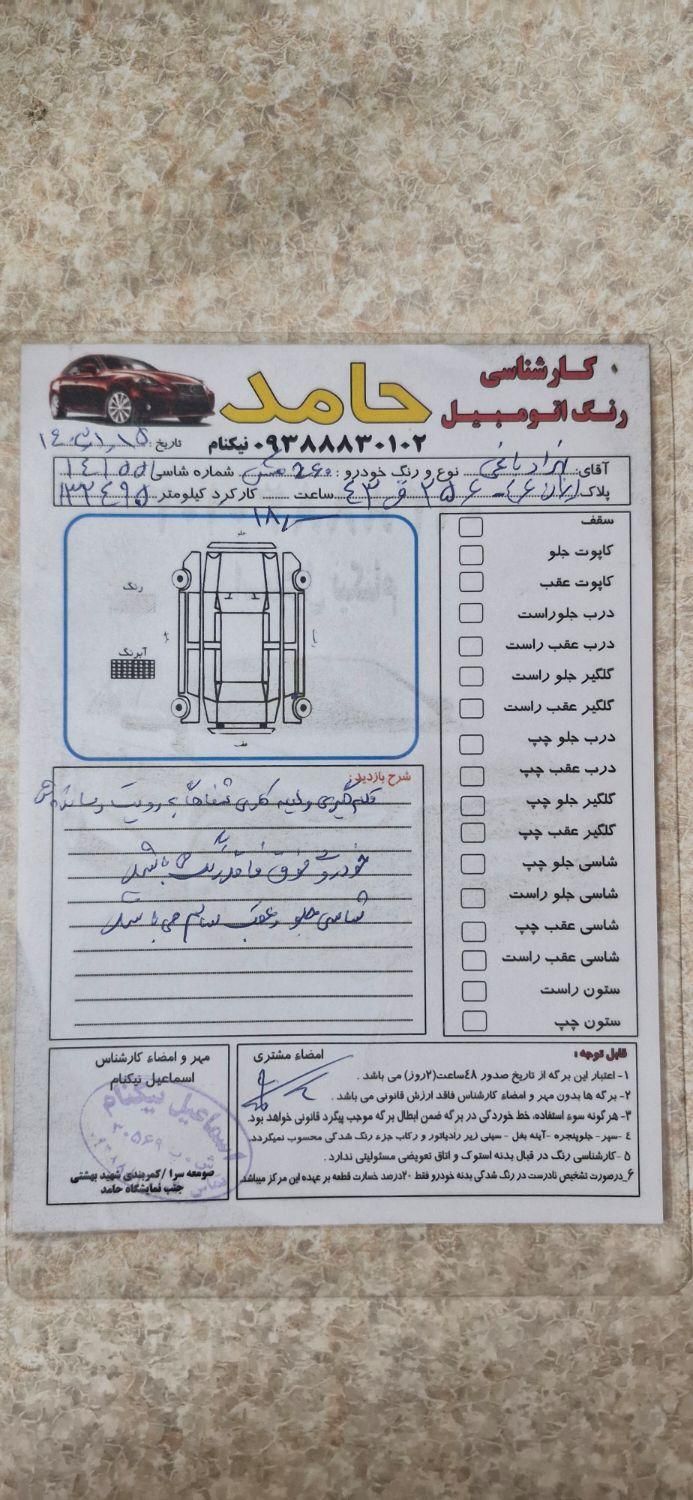 کارشناسی
رنگ اتومبیل
حامد
۰۹۳۸۸۸۳۰۱۰۲ نیکنام
تاریخ:
آقای: نوع و رنگ خودرو: 260 شماره شاسی: ۱۴۱۵۵
پلاک: ایران ۴۶ - ۲۵۶ ق ۴۳ ساعت ۱۸ کارکرد کیلومتر ۱۳۲۴۹۵
جلو
رنگ
آبرنگ
عقب
سقف
کاپوت جلو
کاپوت عقب
درب جلوراست
درب عقب راست
گلگیر جلو راست
گلگیر عقب راست
درب جلو چپ
درب عقب چپ
گلگیر جلو چپ
گلگیر عقب چپ
شاسی جلو چپ
شاسی جلو راست
شاسی عقب چپ
شاسی عقب راست
ستون راست
ستون چپ
شرح بازدید:
قلم‌گیری و لیسه کاری شفاهاً به رویت رسانده شد
خودروی فوق فاقد رنگ می باشد
شاسی جلو و عقب سالم می باشد
قابل توجه:
امضاء مشتری
۱- اعتبار این برگه از تاریخ صدور ٤٨ساعت(۲روز) می باشد .
۲- برگه ها بدون مهر و امضاء کارشناس فاقد ارزش قانونی می باشد .
۳- هرگونه سوء استفاده، خط خوردگی در برگه ضمن ابطال برگه موجب پیگرد قانونی خواهد بود.
٤ - سپر - جلوپنجره - آینه بغل - سینی زیر رادیاتور و رکاب جزء رنگ شدگی محسوب نمیگردد.
۵ - کارشناسی رنگ در قبال بدنه استوک و اتاق تعویضی مسئولیتی ندارد .
۶_درصورت تشخیص نادرست در رنگ شدگی بدنه خودرو فقط ۲۰درصد خسارت قطعه بر عهده این مرکز میباشد.
مهر و امضاء کارشناس
اسماعیل نیکنام
اسماعیل نیکنام
۳۰۵۶۹
صومعه سرا / کمربندی شهید بهشتی
جنب نمایشگاه حامد